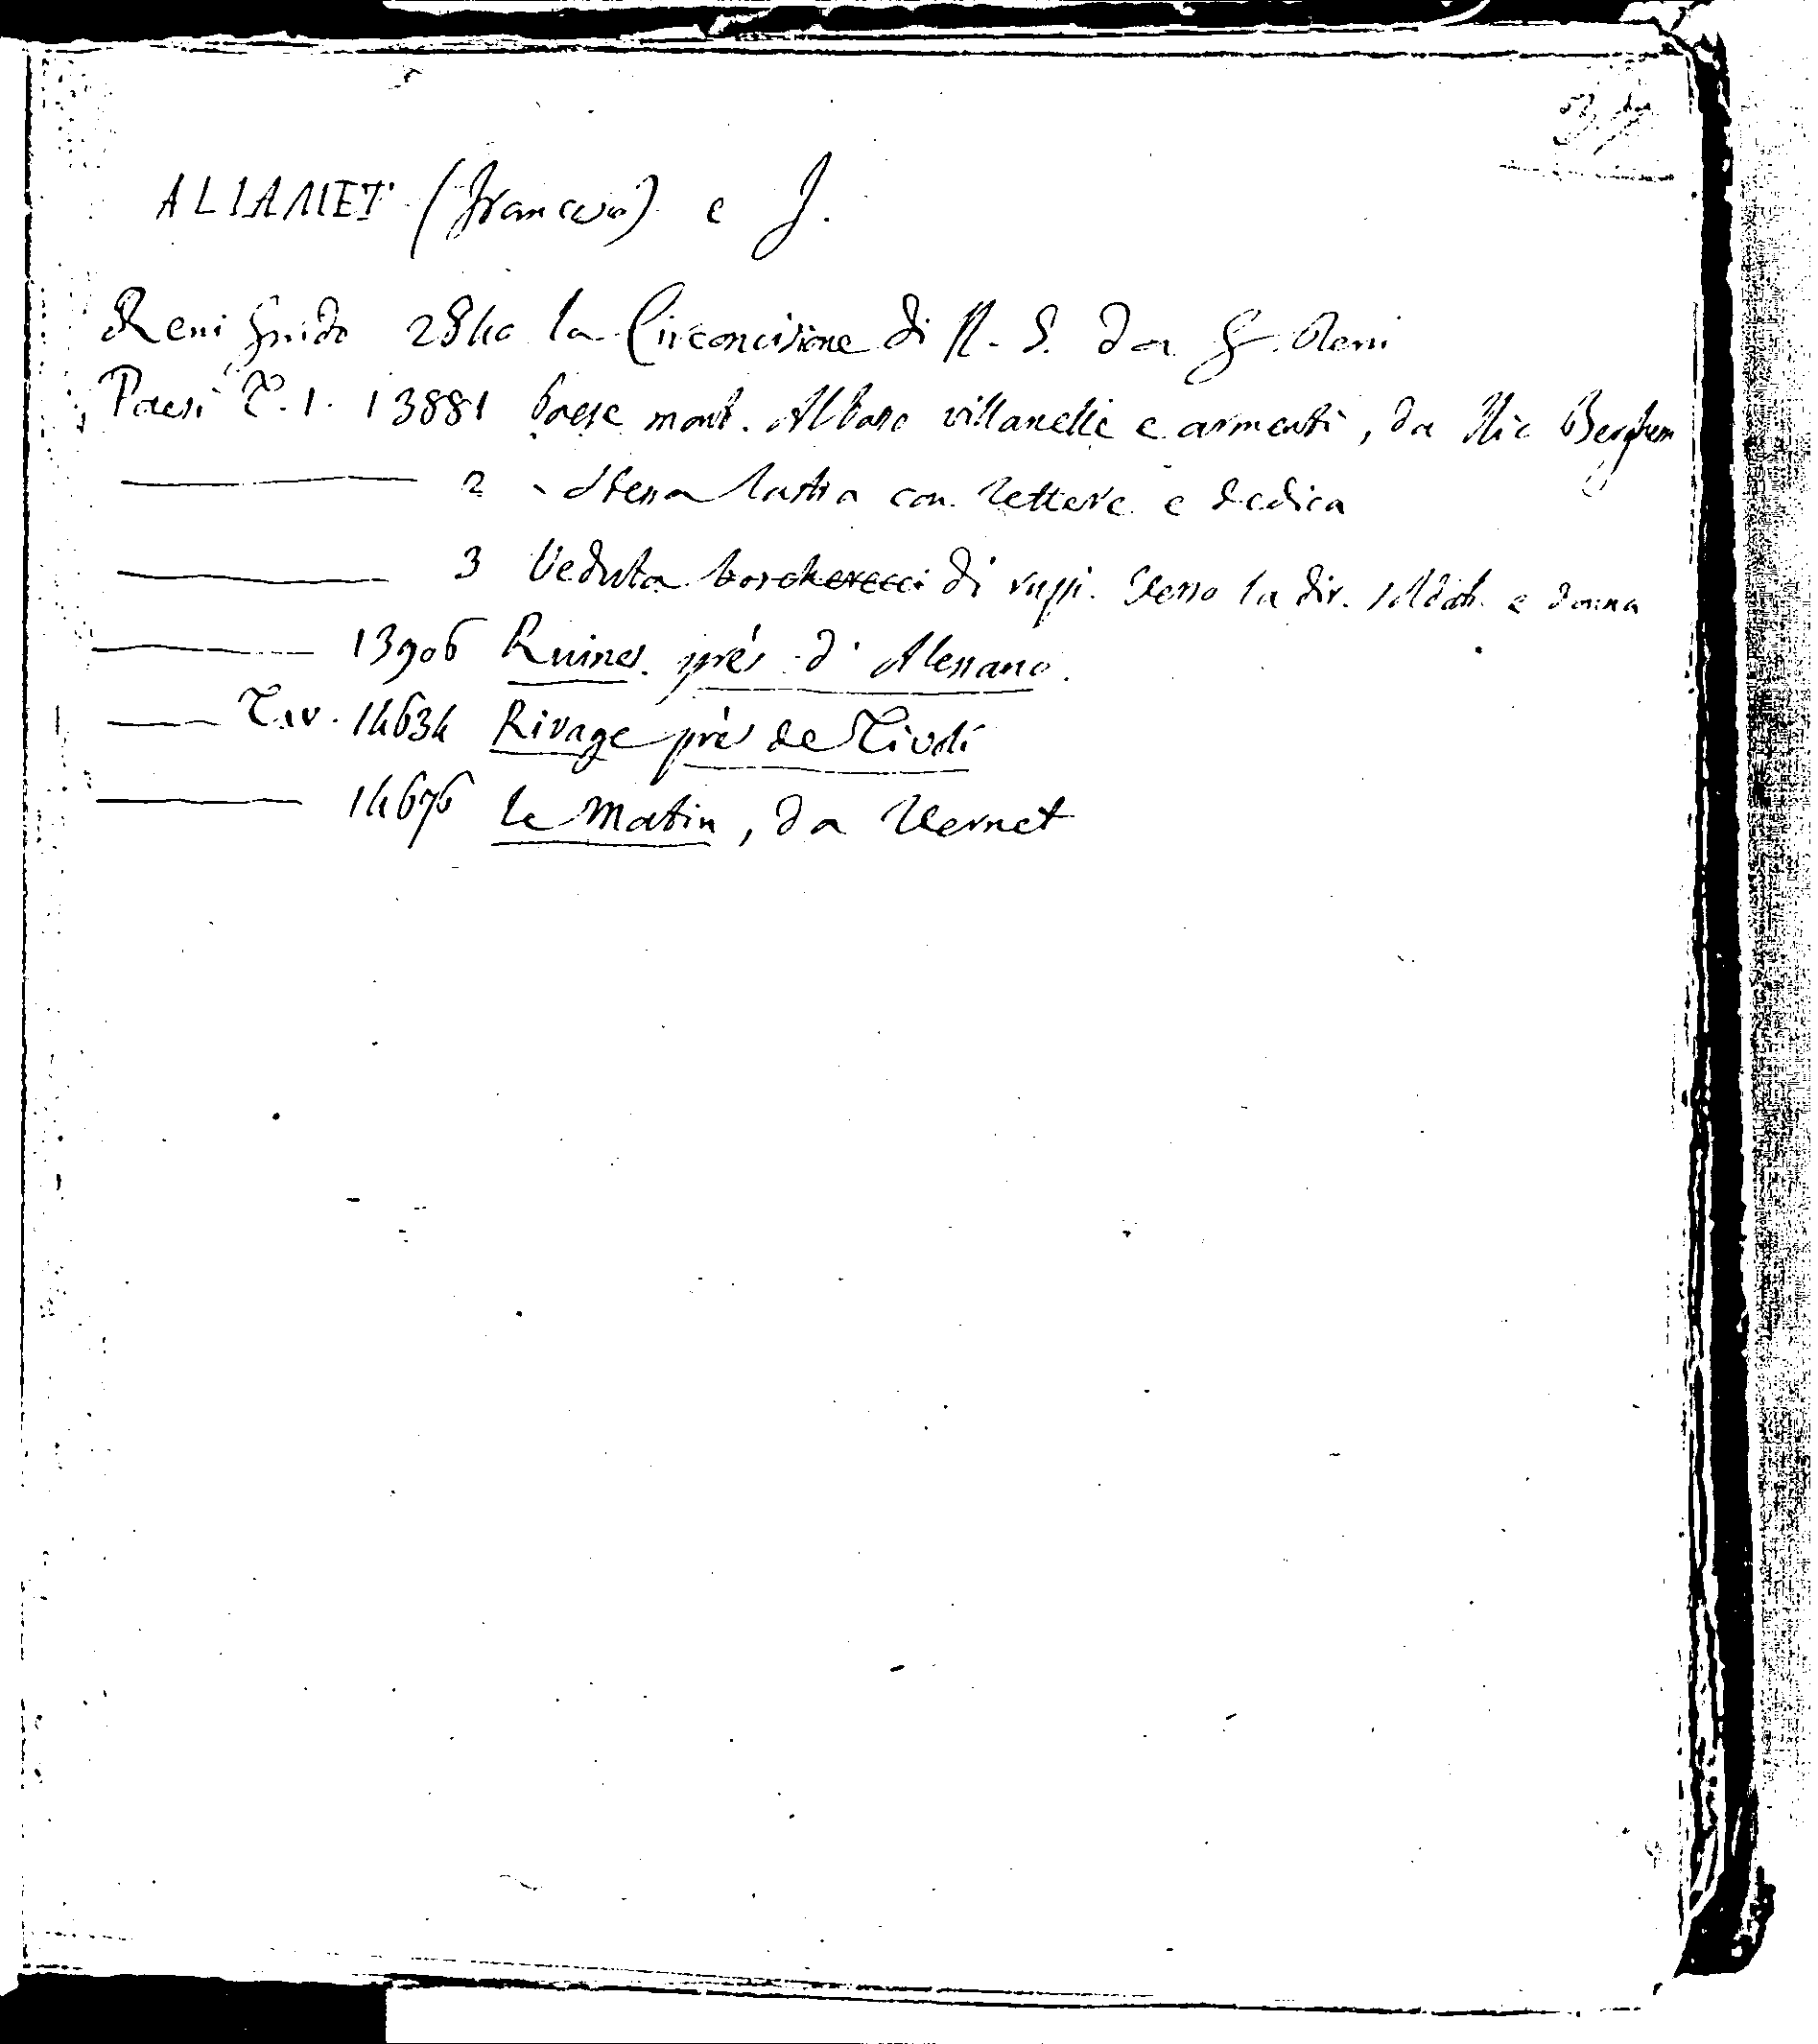 ALIAMET (Francesco) e J.
Reni Guido 2840 la Circoncisione di N. S. da G. Reni
Paesi T. 1. 13881 Paese mont. Albano villanelle e armenti, da Nic Berghem
2 stessa lastra con lettere e dedica
3 Veduta boscherecci di rupi. Verso la dir. soldat. e donna
13906 Ruines près d'Alessano.
T. IV. 14634 Rivage près de Tivoli
14676 le Matin, da Vernet